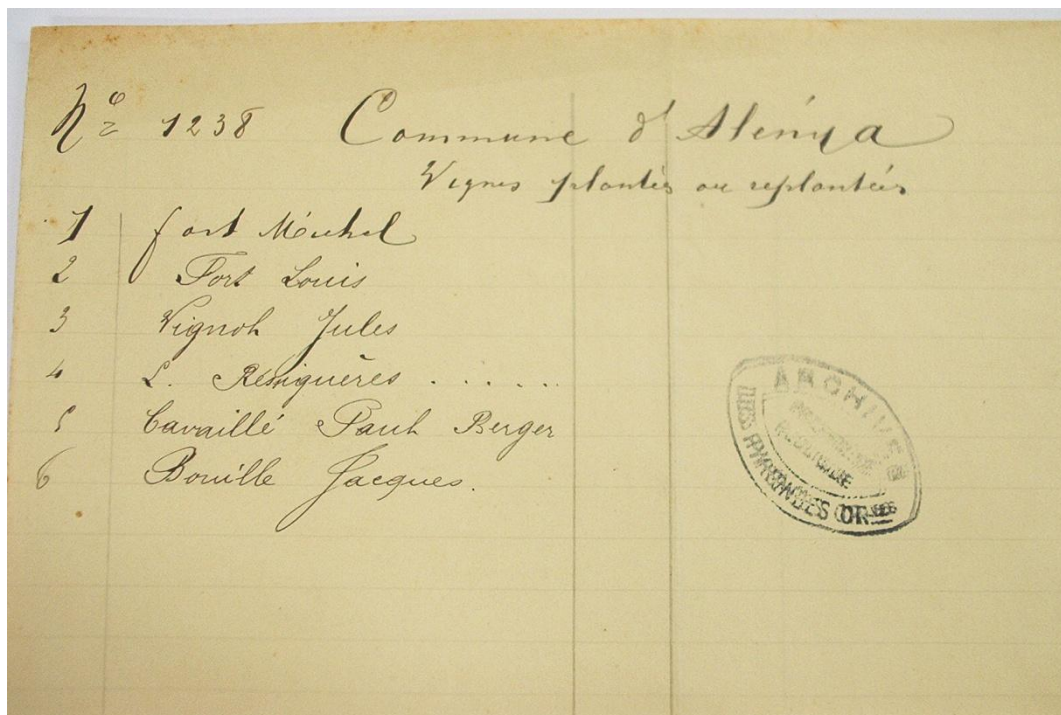 Nº 1238 Commune d'Alénya
Vignes plantés ou replantées
1 fort Michel
2 Fort Louis
3 Vignoh Jules
4 L. Résiguères . . . . . .
5 Cavaillé Paul Berger
6 Bouille Jacques.
ARCHIVES